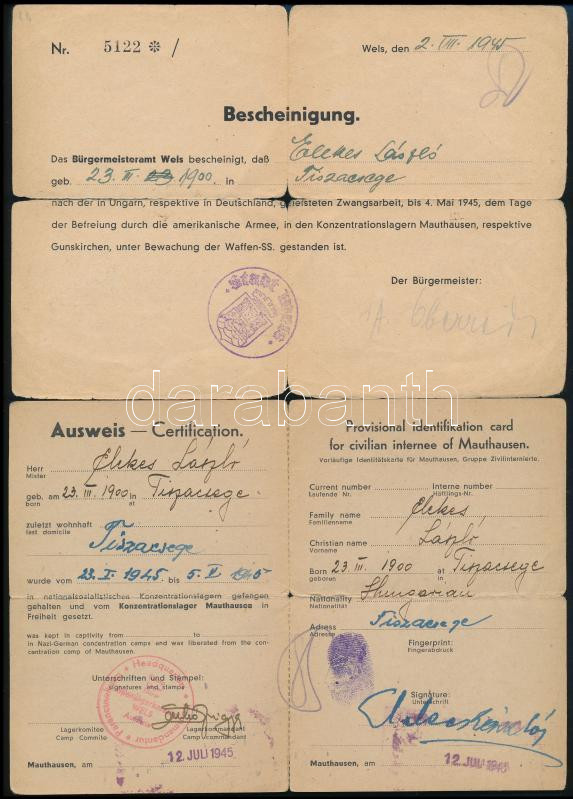 Nr. 5122 * /
Wels, den 2. VII. 1945
Bescheinigung.
Das Bürgermeisteramt Wels bescheinigt, daß Elekes László
geb. 23. III. 1900 in Tiszacsege
nach der in Ungarn, respektive in Deutschland, geleisteten Zwangsarbeit, bis 4. Mai 1945, dem Tage
der Befreiung durch die amerikanische Armee, in den Konzentrationslagern Mauthausen, respektive
Gunskirchen, unter Bewachung der Waffen-SS. gestanden ist.
Der Bürgermeister:
darabanth
Ausweis — Certification.
Herr Elekes László
Mister
geb. am 23 III. 1900 in Tiszacsege
born at
zuletzt wohnhaft
last domicile
Tiszacsege
wurde vom 23. I. 1945. bis 5. V. 1945
in nationalsozialistischen Konzentrationslagern gefangen
gehalten und vom Konzentrationslager Mauthausen in
Freiheit gesetzt.
was kept in captivity from to
in Nazi-German concentration camps and was liberated from the con-
centration comp of Mauthausen.
Unterschriften und Stempel:
signatures and stamps
WELS
Lagerkomitee Lagerkommandant
Camp Commite Camp commandent
Mauthausen, am 12. JULI 1945
Provisional identifikation card
for civilian internee of Mauthausen.
Vorläufige Identitätskarte für Mauthausen, Gruppe Zivilinternierte.
Current number Interne number
Laufende Nr. Häftlings-Nr.
Family name Elekes
Familienname
Christian name László
Vorname
Born 23. III. 1900 at Tiszacsege
geboren in
Nationality Hungarian
Nationalität
Adress Tiszacsege
Adresse
Fingerprint:
Fingerabdruck
Signature:
Unterschrift
Mauthausen, am 12. JULI 1945